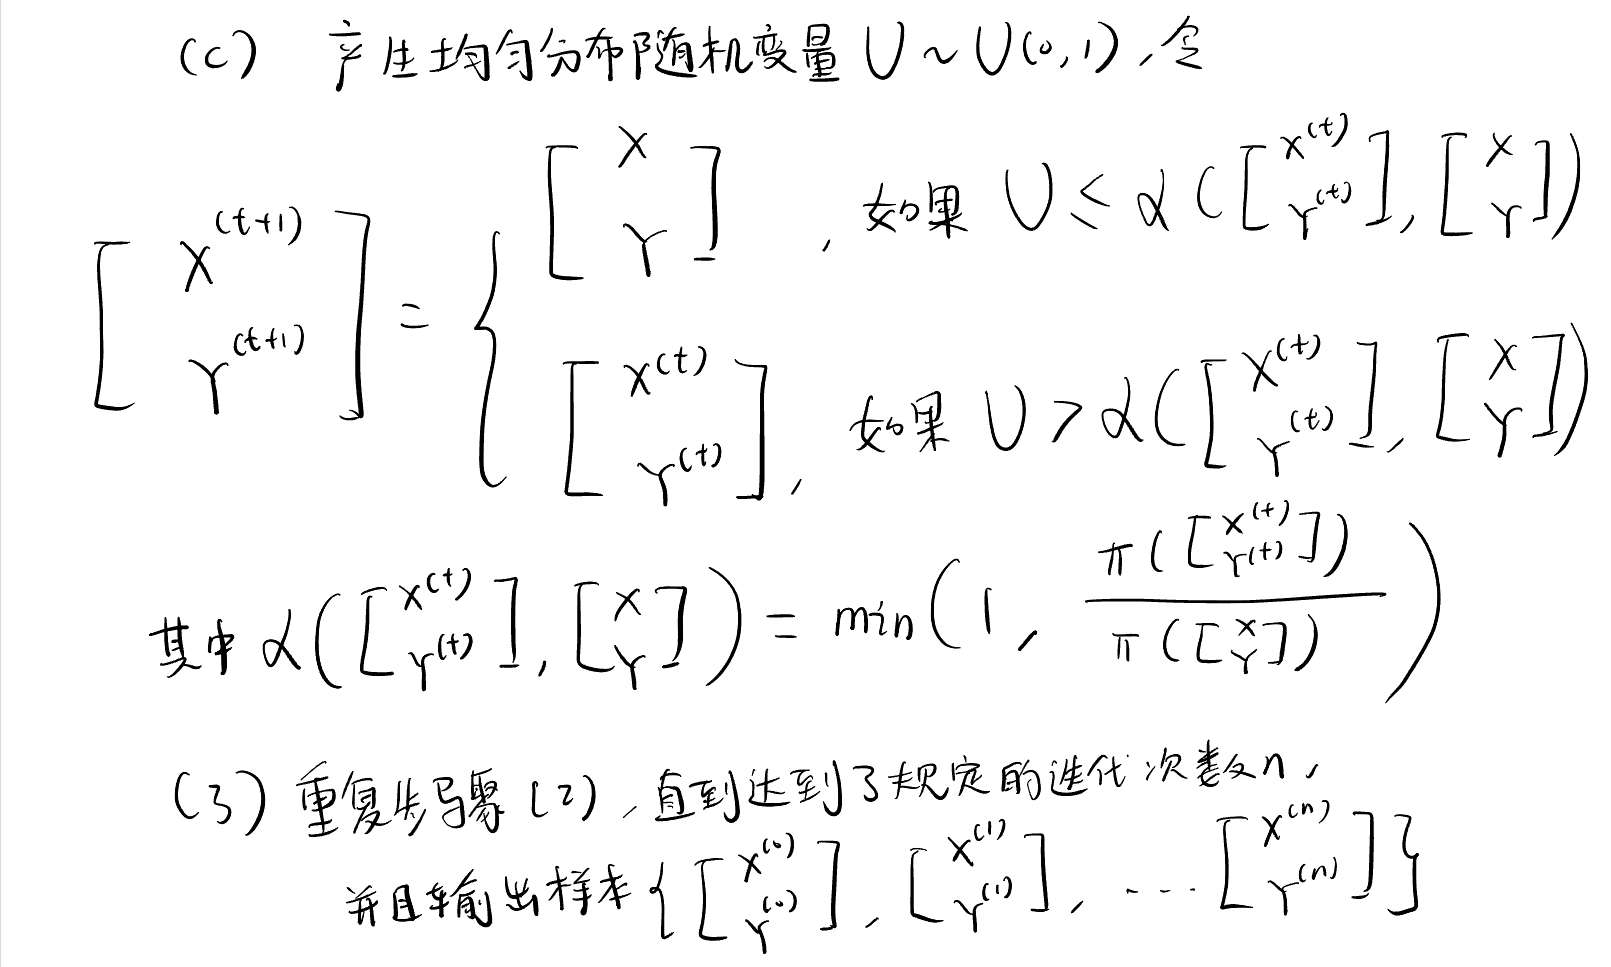 (c) 产生均匀分布随机变量 U ~ U(0,1), 令
[X^(t+1) Y^(t+1)] = { [X Y], 如果 U ≤ α([X^(t) Y^(t)], [X Y])
[X^(t) Y^(t)], 如果 U > α([X^(t) Y^(t)], [X Y])
其中 α([X^(t) Y^(t)], [X Y]) = min(1, π([X^(t) Y^(t)]) / π([X Y]))
(3) 重复步骤(2), 直到达到了规定的迭代次数n,
并且输出样本{[X^(0) Y^(0)], [X^(1) Y^(1)], ... [X^(n) Y^(n)]}